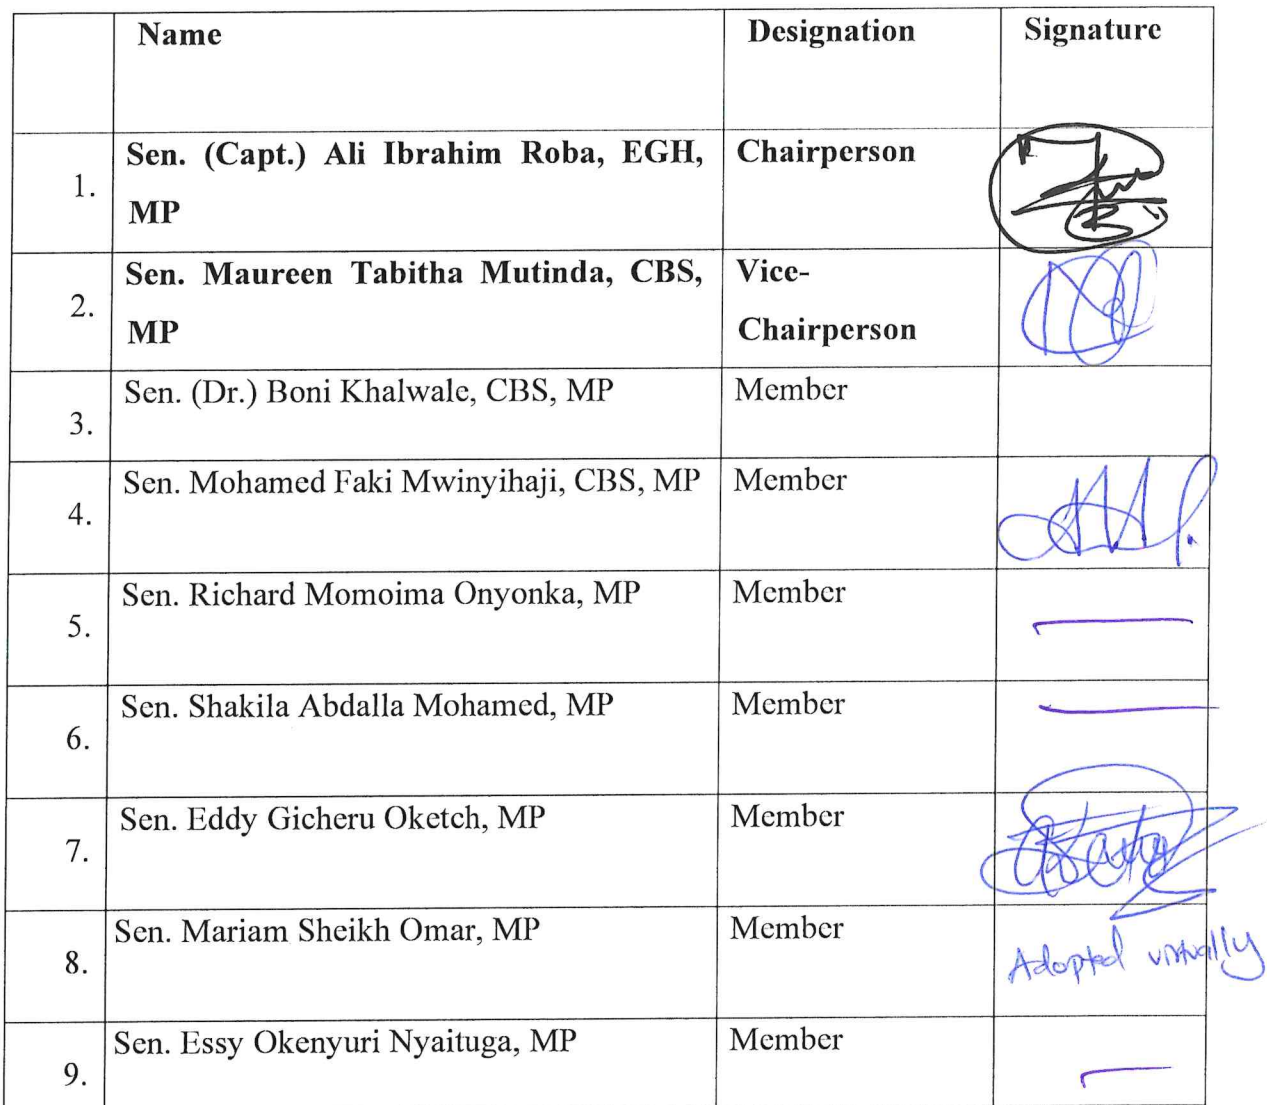 Name Designation Signature
1. Sen. (Capt.) Ali Ibrahim Roba, EGH, Chairperson
MP
2. Sen. Maureen Tabitha Mutinda, CBS, Vice-
MP Chairperson
3. Sen. (Dr.) Boni Khalwale, CBS, MP Member
4. Sen. Mohamed Faki Mwinyihaji, CBS, MP Member
5. Sen. Richard Momoima Onyonka, MP Member
6. Sen. Shakila Abdalla Mohamed, MP Member
7. Sen. Eddy Gicheru Oketch, MP Member
8. Sen. Mariam Sheikh Omar, MP Member Adopted virtually
9. Sen. Essy Okenyuri Nyaituga, MP Member